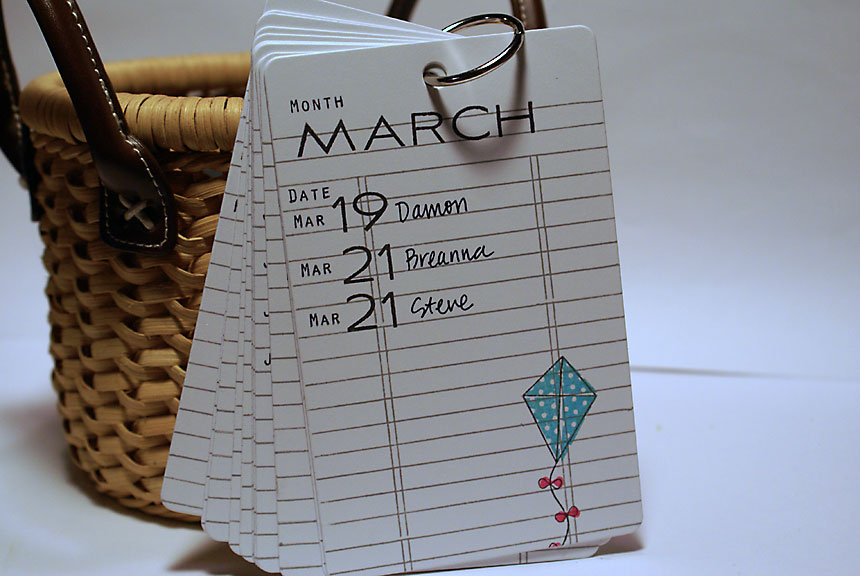 MONTH
MARCH
DATE
MAR 19 Damon
MAR 21 Breanna
MAR 21 Steve